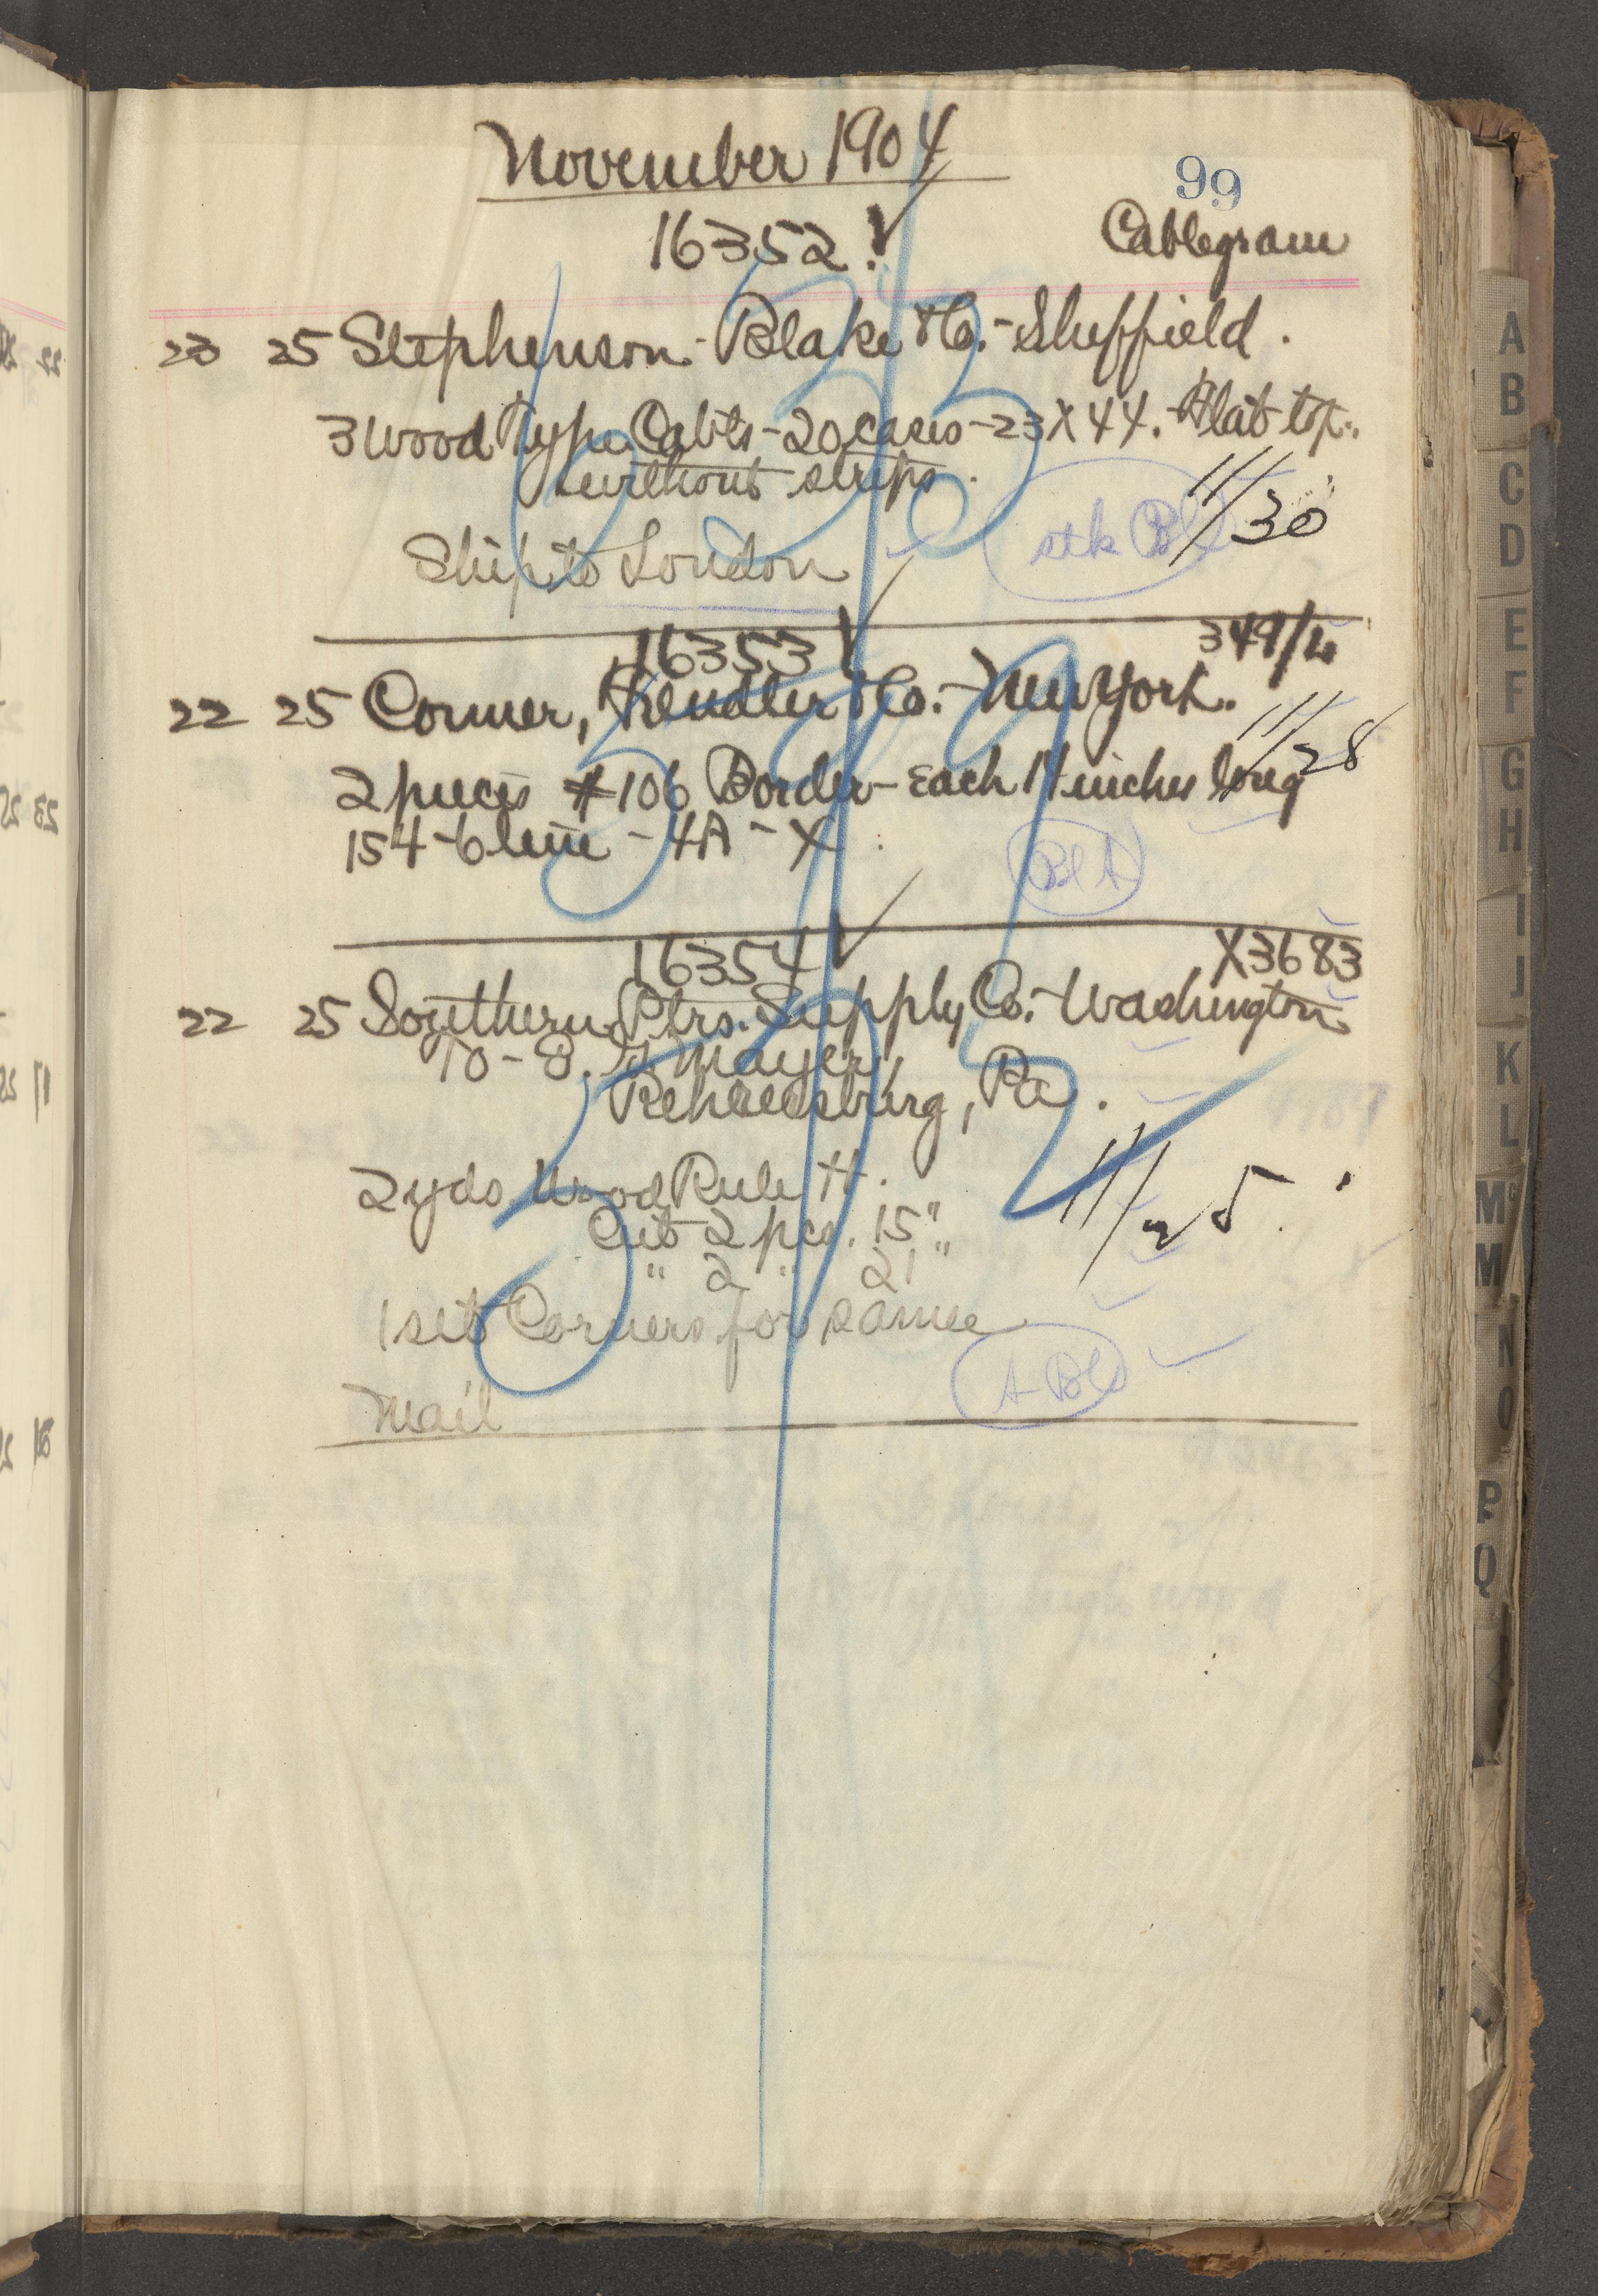 November 1904
99
16352
Cablegram
23 25 Stephenson-Blake & Co.-Sheffield.
3 Wood Type Cabts-20 cases-23X44. Flat top.
without strips.
11/30
stk Bl
Ship to London
16353
349/4
22 25 Conner, Fendler & Co.-New York.
11/28
2 pieces #106 Border-Each 14 inches long
154-6 line-4A-X
Bl A
16354
X3683
22 25 Southern Ptrs. Supply Co.-Washington
To-8. Mayer,
Rehrersburg, Pa.
2 yds Wood Rule H.
11/25
Cut 2 pcs. 15"
" 2 " 21"
1 set Corners for same
A Bl
Mail
A
B
C
D
E
F
G
H
I
J
K
L
M
M
N
O
P
Q